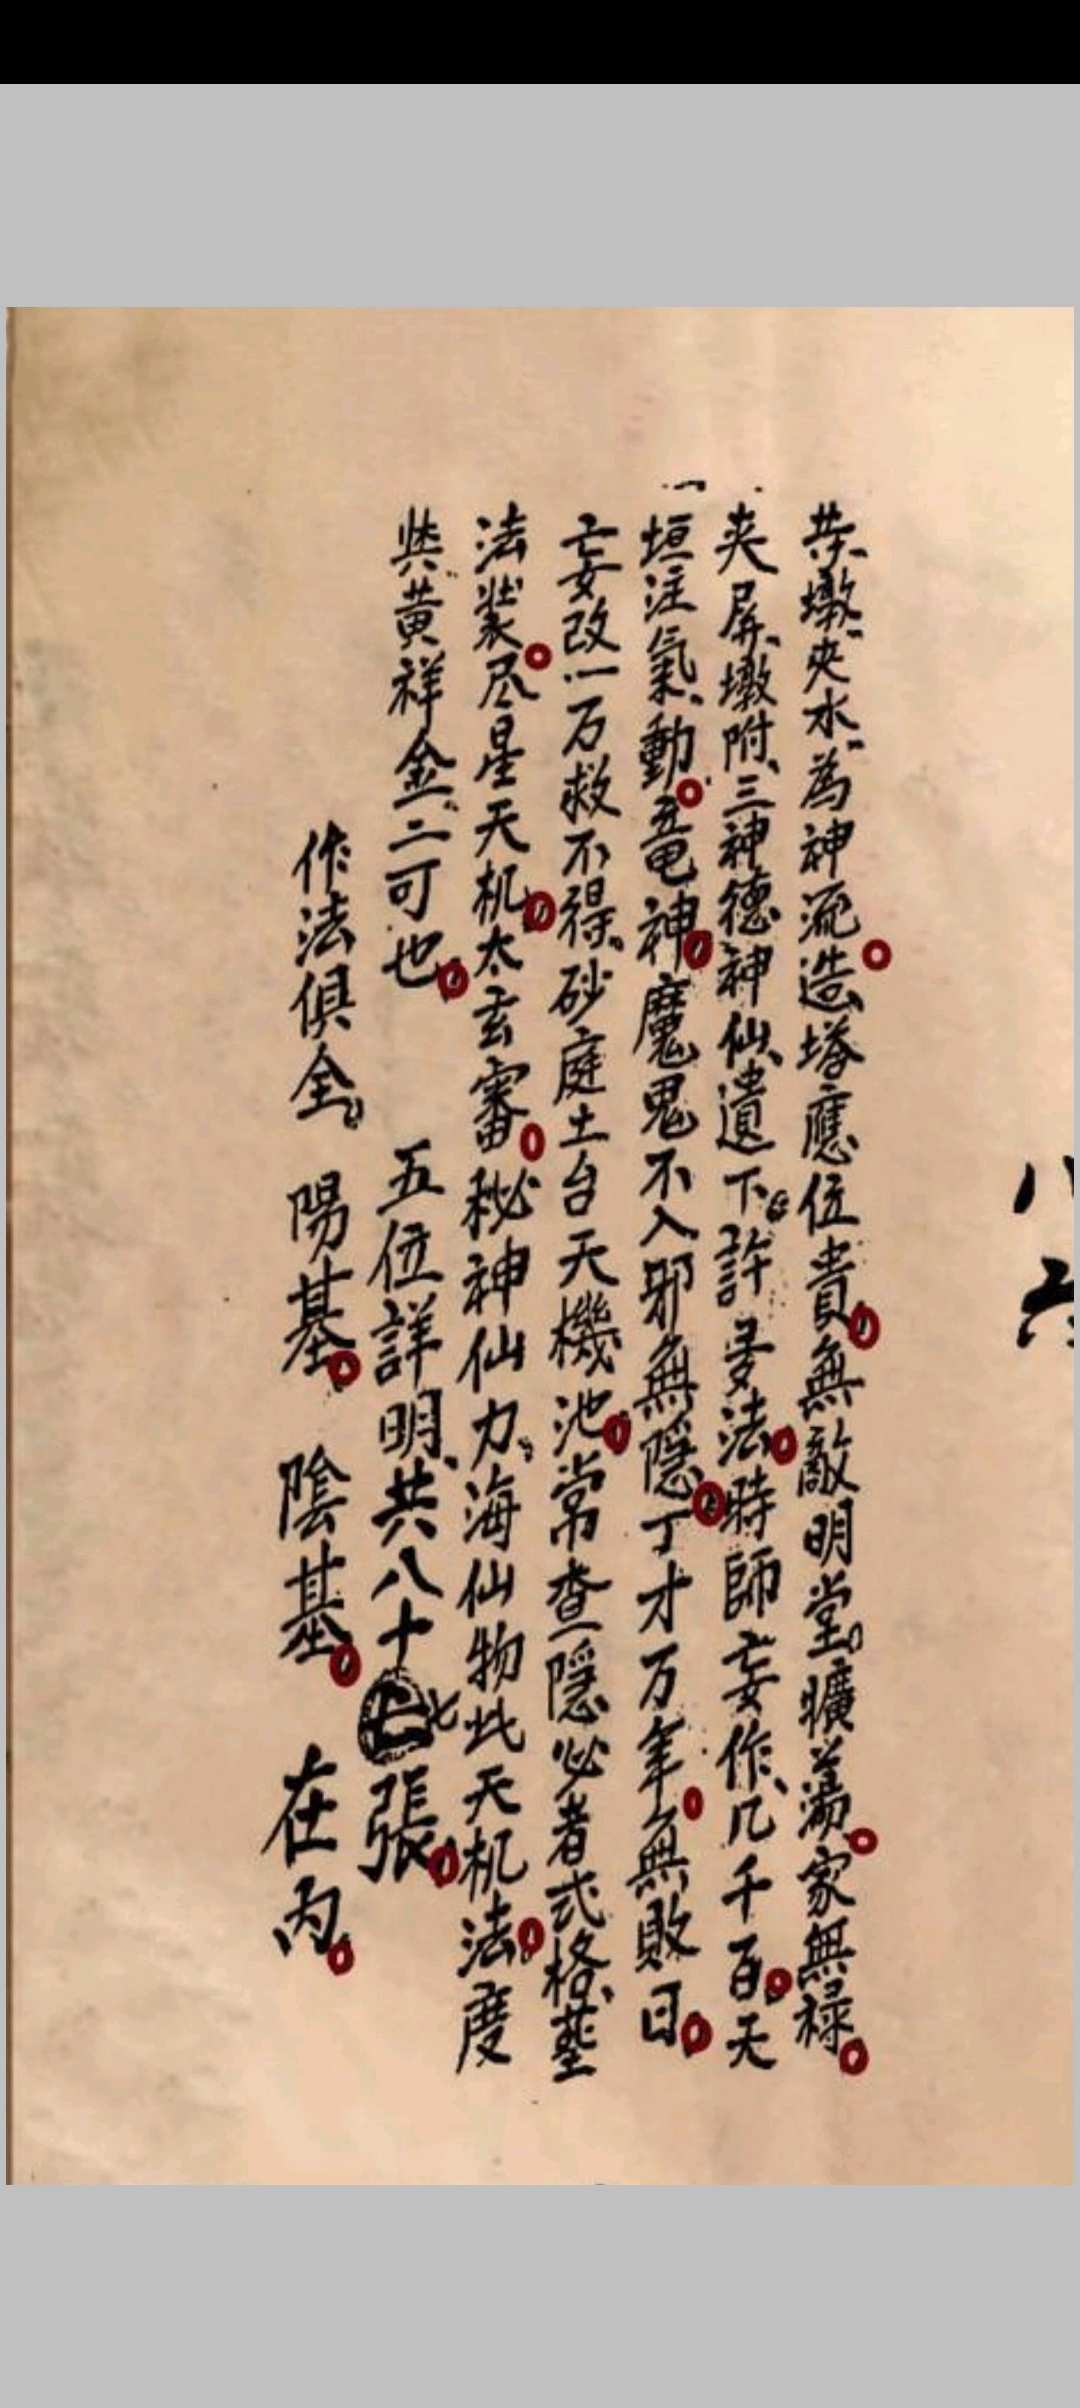 共墩夾水為神流造塔應位貴無敵明堂曠蕩家無祿
夾屏墩附三神德神仙遺下許多法時師妄作几千百天
垣注氣動五竜神魔鬼不入邪無隱丁才万年無敗日
妄改一万救不得砂庭土台天機池常查隱必者式格塟
法裝尽星天机太玄審秘神仙力海仙物此天机法度
與黃祥金二可也 五位詳明共八十七張
作法俱全 陽基 陰基 在內
八